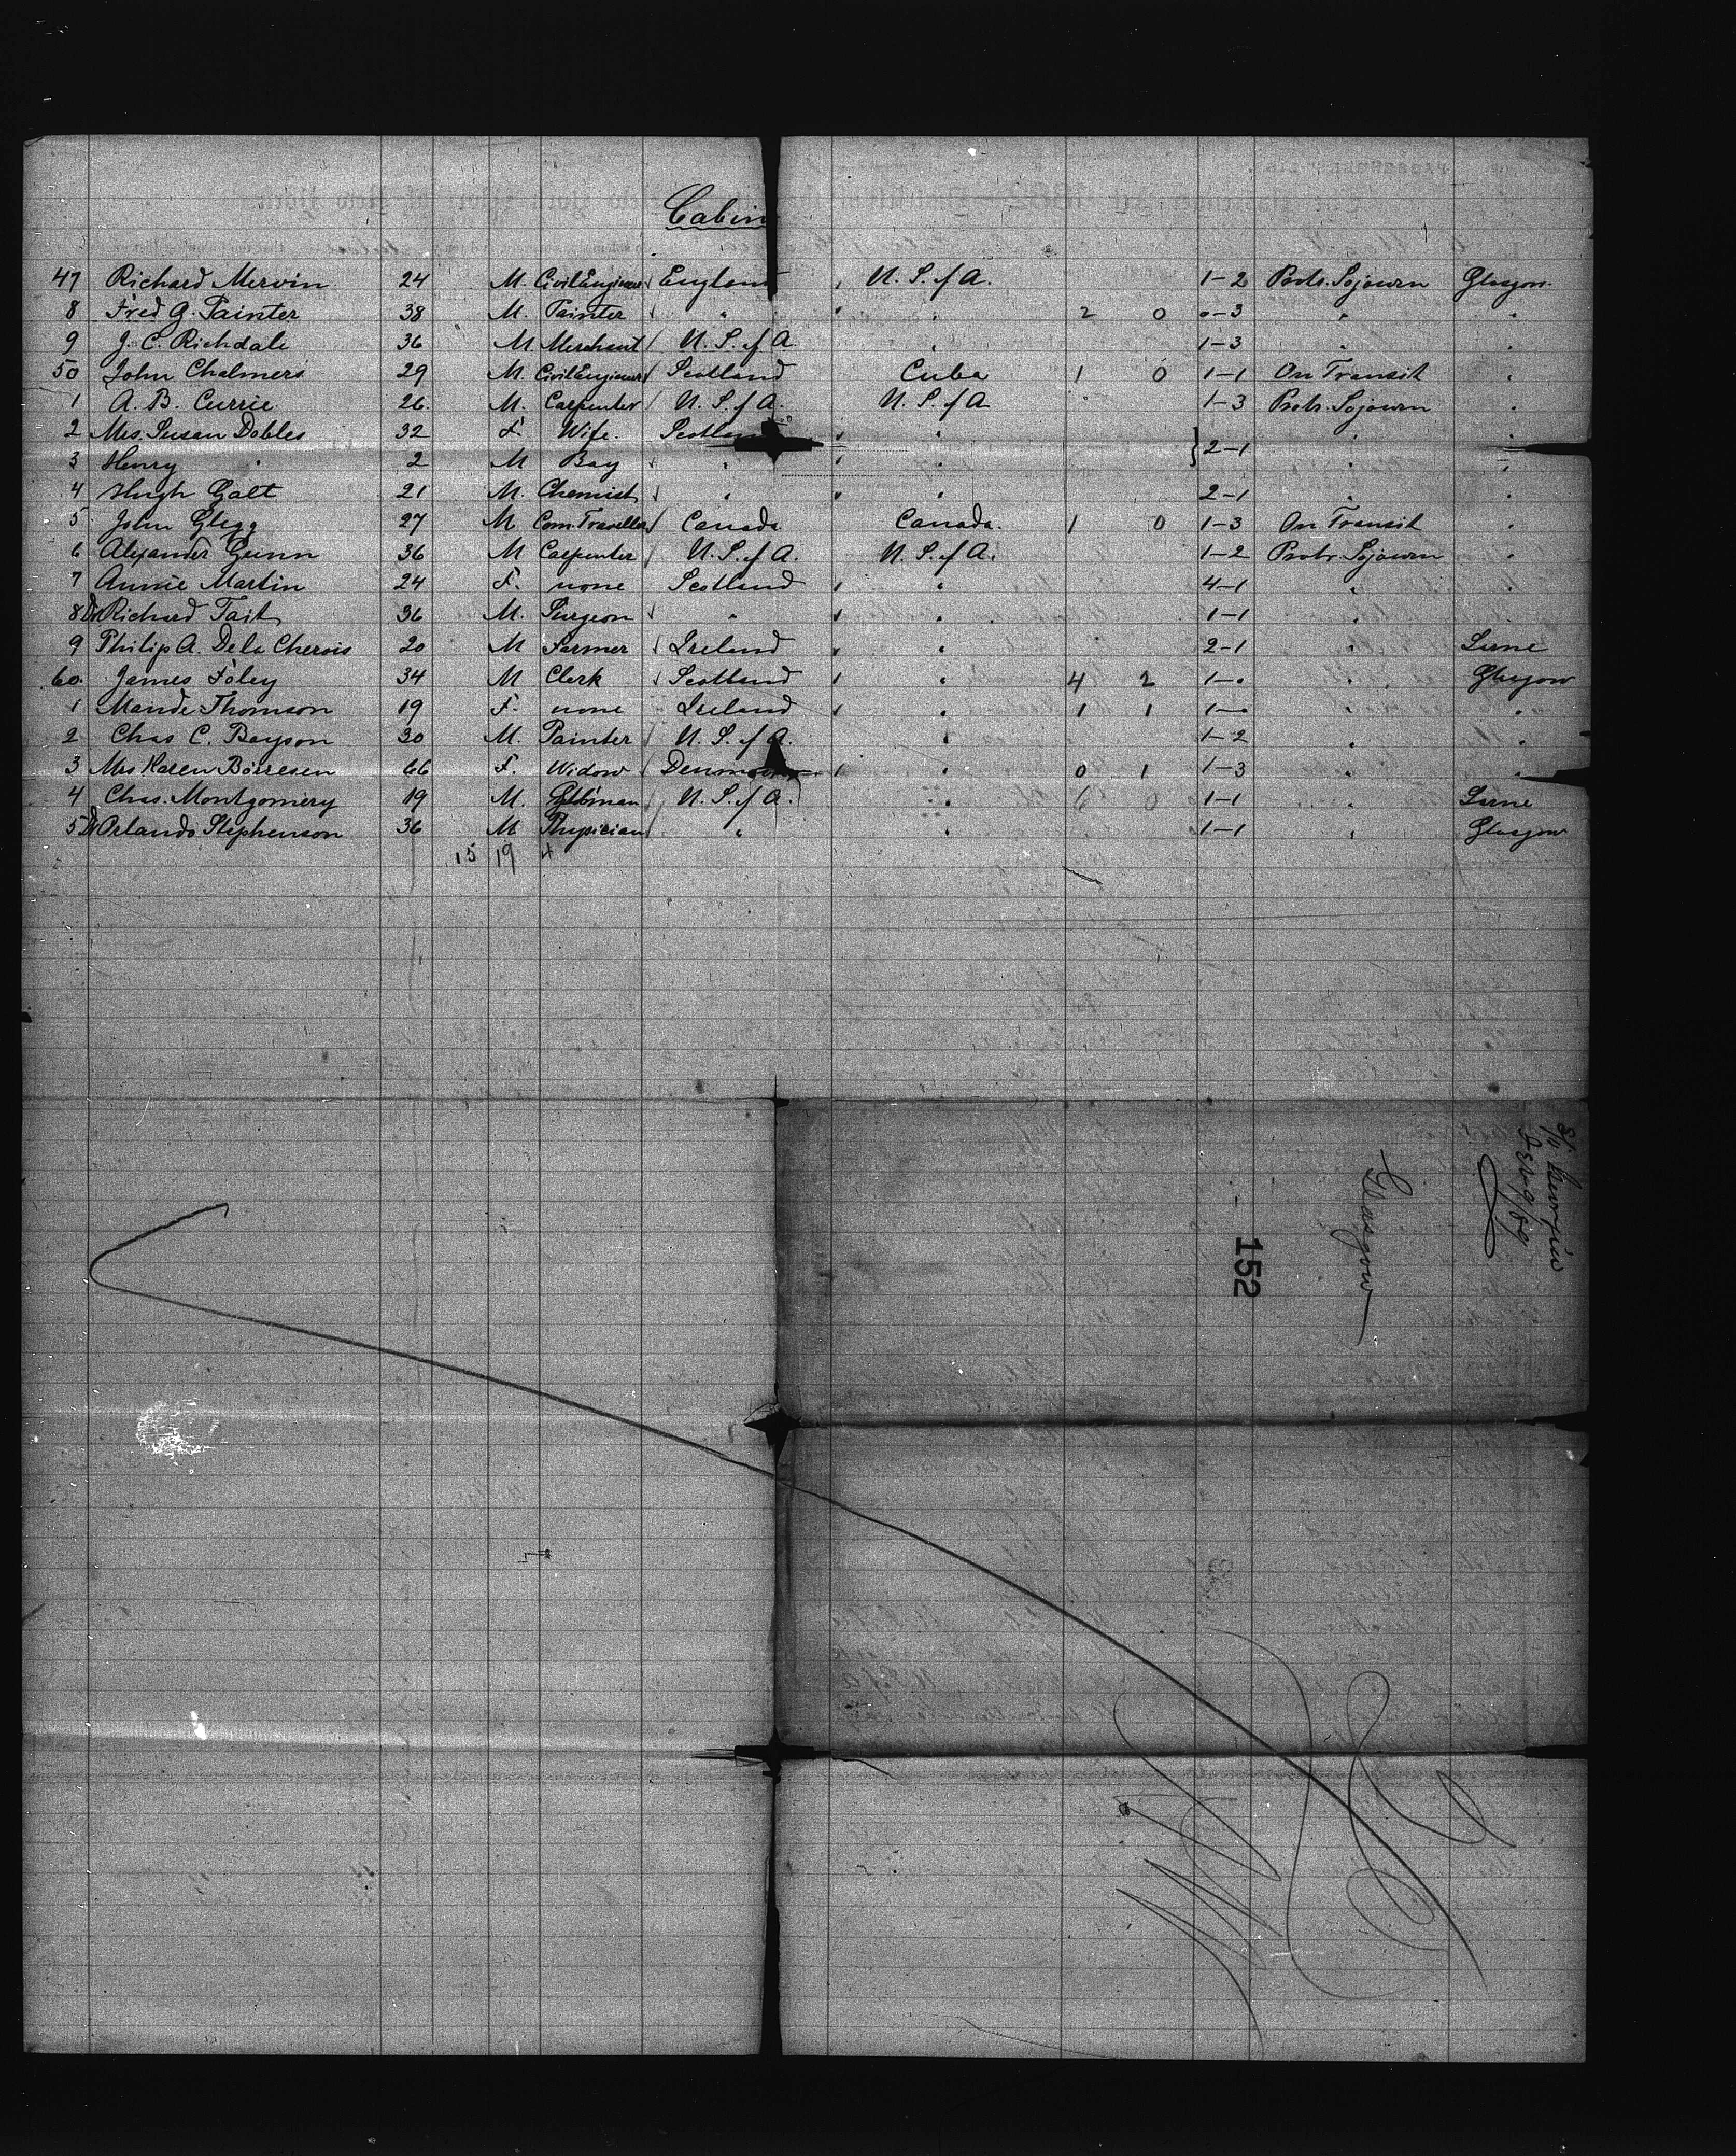 Cabin
47 Richard Mervin 24 M. Civil Engineer England U. S. of A. 1-2 Protr. Sojourn Glasgow
8 Fred G. Painter 38 M. Painter " " 2 0 0-3 " "
9 J. C. Richdale 36 M Merchant U. S. of A. " 1-3 " "
50 John Chalmers 29 M. Civil Engineer Scotland Cuba 1 0 1-1 On Transit "
1 A. B. Currie 26. M. Carpenter U. S. of A. U. S. of A 1-3 Protr. Sojourn "
2 Mrs. Susan Dobles 32 F. Wife. Scotland " } 2-1 " "
3 Henry " 2 M Boy " " " "
4 Hugh Galt 21 M. Chemist " " 2-1 " "
5 John Glegg 27 M Com. Traveller Canada Canada. 1 0 1-3 On Transit "
6 Alexander Gunn 36 M Carpenter U. S. of A. U. S. of A. 1-2 Protr. Sojourn "
7 Annie Martin 24 F. none Scotland " 4-1 " "
8 Dr Richard Tait 36 M. Surgeon " " 1-1 " "
9 Philip A. De la Cherois 20 M Farmer Ireland " 2-1 " Larne
60. James Foley 34 M Clerk Scotland " 4 2 1-0 " Glasgow
1 Maude Thomson 19 F. none Ireland " 1 1 1-0 " "
2 Chas C. Bayson 30 M. Painter U. S. of A. " 1-2 " "
3 Mrs Karen Börresen 66 F. Widow Denmark " 0 1 1-3 " "
4 Chas. Montgomery 19 M. U. S. of A. " 6 0 1-1 " Larne
5 Dr Orlando Stephenson 36 M Physician " 1-1 " Glasgow
15 19 4
S/S
9/89
Glasgow
152